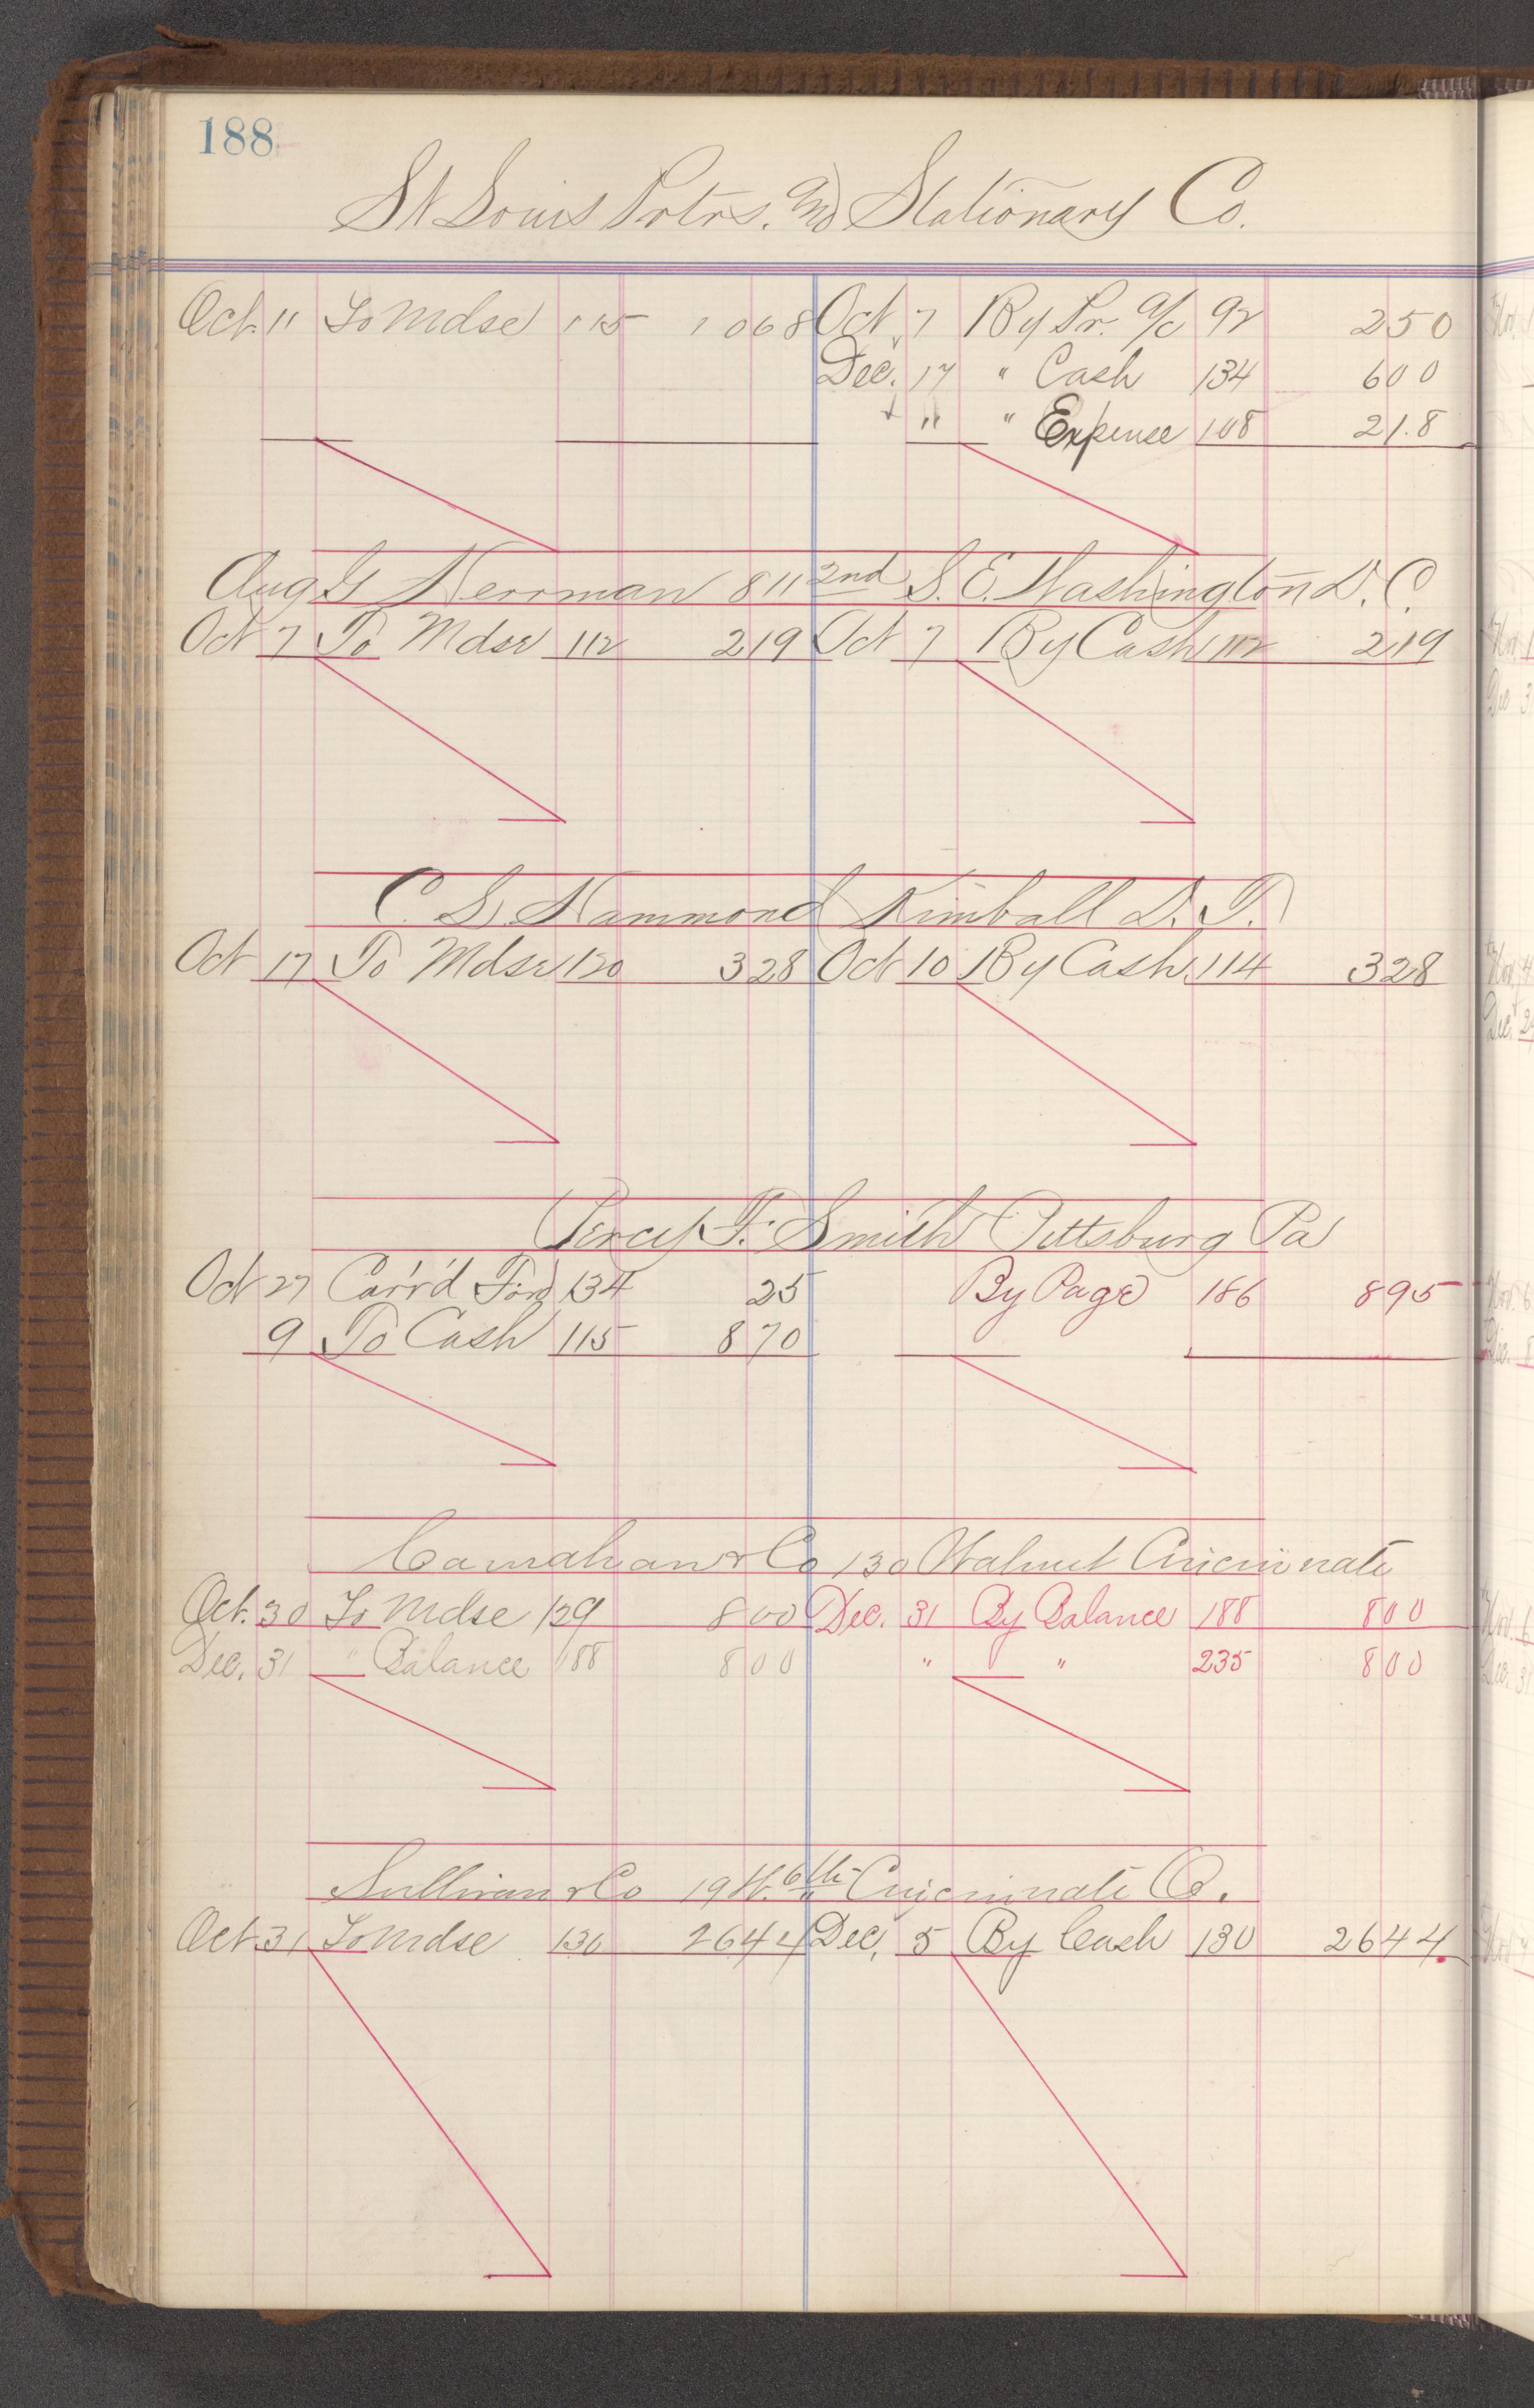 188
St Louis Prtrs. and Stationary Co.
Oct. 11 To Mdse 115 1068 Oct 7 By Pr. a/c 92 250
Dec. 17 " Cash 134 600
" " Expense 108 21.8
Aug G Herrman 811 2nd S. E. Washington D. C.
Oct 7 To Mdse 112 219 Oct 7 By Cash 112 219
C. S. Hammond Kimball D. T.
Oct 17 To Mdse 120 328 Oct 10 By Cash 114 328
Percy F. Smith Pittsburg Pa
Oct 27 Carr'd Ford 134 25 By Page 186 895
9 To Cash 115 870
Carnahan & Co 130 Walnut Cincinnati
Oct. 30 To Mdse 129 800 Dec. 31 By Balance 188 800
Dec. 31 " Balance 188 800 " " 235 800
Sullivan & Co 19 W. 6th Cincinnati O.
Oct. 31 To Mdse 130 2644 Dec. 5 By Cash 130 2644